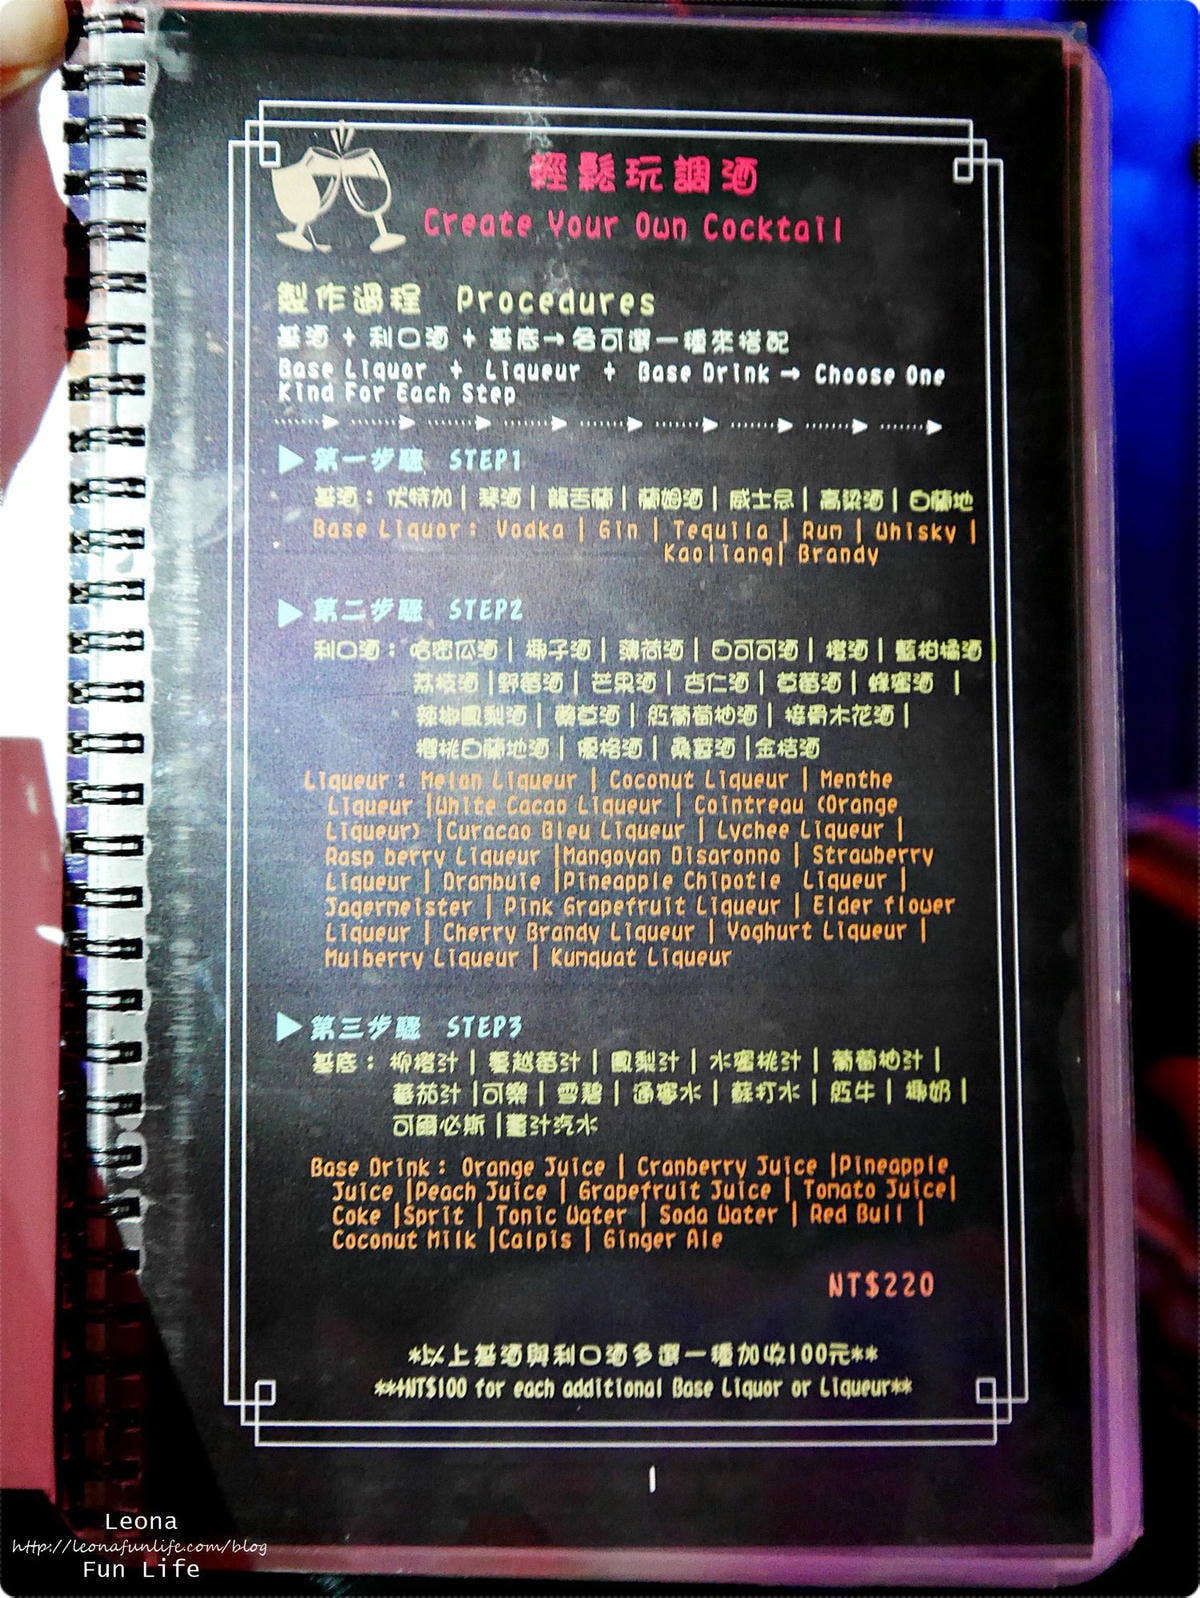 輕鬆玩調酒
Create Your Own Cocktail
製作過程 Procedures
基酒 + 利口酒 + 基底→各可選一種來搭配
Base Liquor + Liqueur + Base Drink → Choose One
Kind For Each Step
▶第一步驟 STEP1
基酒：伏特加 | 琴酒 | 龍舌蘭 | 蘭姆酒 | 威士忌 | 高粱酒 | 白蘭地
Base Liquor: Vodka | Gin | Tequila | Rum | Whisky |
Kaoliang| Brandy
▶第二步驟 STEP2
利口酒：哈密瓜酒 | 椰子酒 | 薄荷酒 | 白可可酒 | 橙酒 | 藍柑橘酒
荔枝酒 |野莓酒 | 芒果酒 | 杏仁酒 | 草莓酒 | 蜂蜜酒 |
辣椒鳳梨酒 | 藥草酒 | 紅葡萄柚酒 | 接骨木花酒 |
櫻桃白蘭地酒 | 優格酒 | 桑葚酒 |金桔酒
Liqueur: Melon Liqueur | Coconut Liqueur | Menthe
Liqueur |White Cacao Liqueur | Cointreau (Orange
Liqueur) |Curacao Bleu Liqueur | Lychee Liqueur |
Rasp berry Liqueur |Mangoyan Disaronno | Strawberry
Liqueur | Drambuie |Pineapple Chipotle Liqueur |
Jagermeister | Pink Grapefruit Liqueur | Elder flower
Liqueur | Cherry Brandy Liqueur | Yoghurt Liqueur |
Mulberry Liqueur | Kumquat Liqueur
▶第三步驟 STEP3
基底：柳橙汁 | 蔓越莓汁 | 鳳梨汁 | 水蜜桃汁 | 葡萄柚汁 |
蕃茄汁 |可樂 | 雪碧 | 通寧水 | 蘇打水 | 紅牛 | 椰奶 |
可爾必斯 |薑汁汽水
Base Drink: Orange Juice | Cranberry Juice |Pineapple
Juice |Peach Juice | Grapefruit Juice | Tomato Juice|
Coke |Sprit | Tonic Water | Soda Water | Red Bull |
Coconut Milk |Calpis | Ginger Ale
NT$220
*以上基酒與利口酒多選一種加收100元**
**+NT$100 for each additional Base Liquor or Liqueur**
1
Leona
http://leonafunlife.com/blog
Fun Life